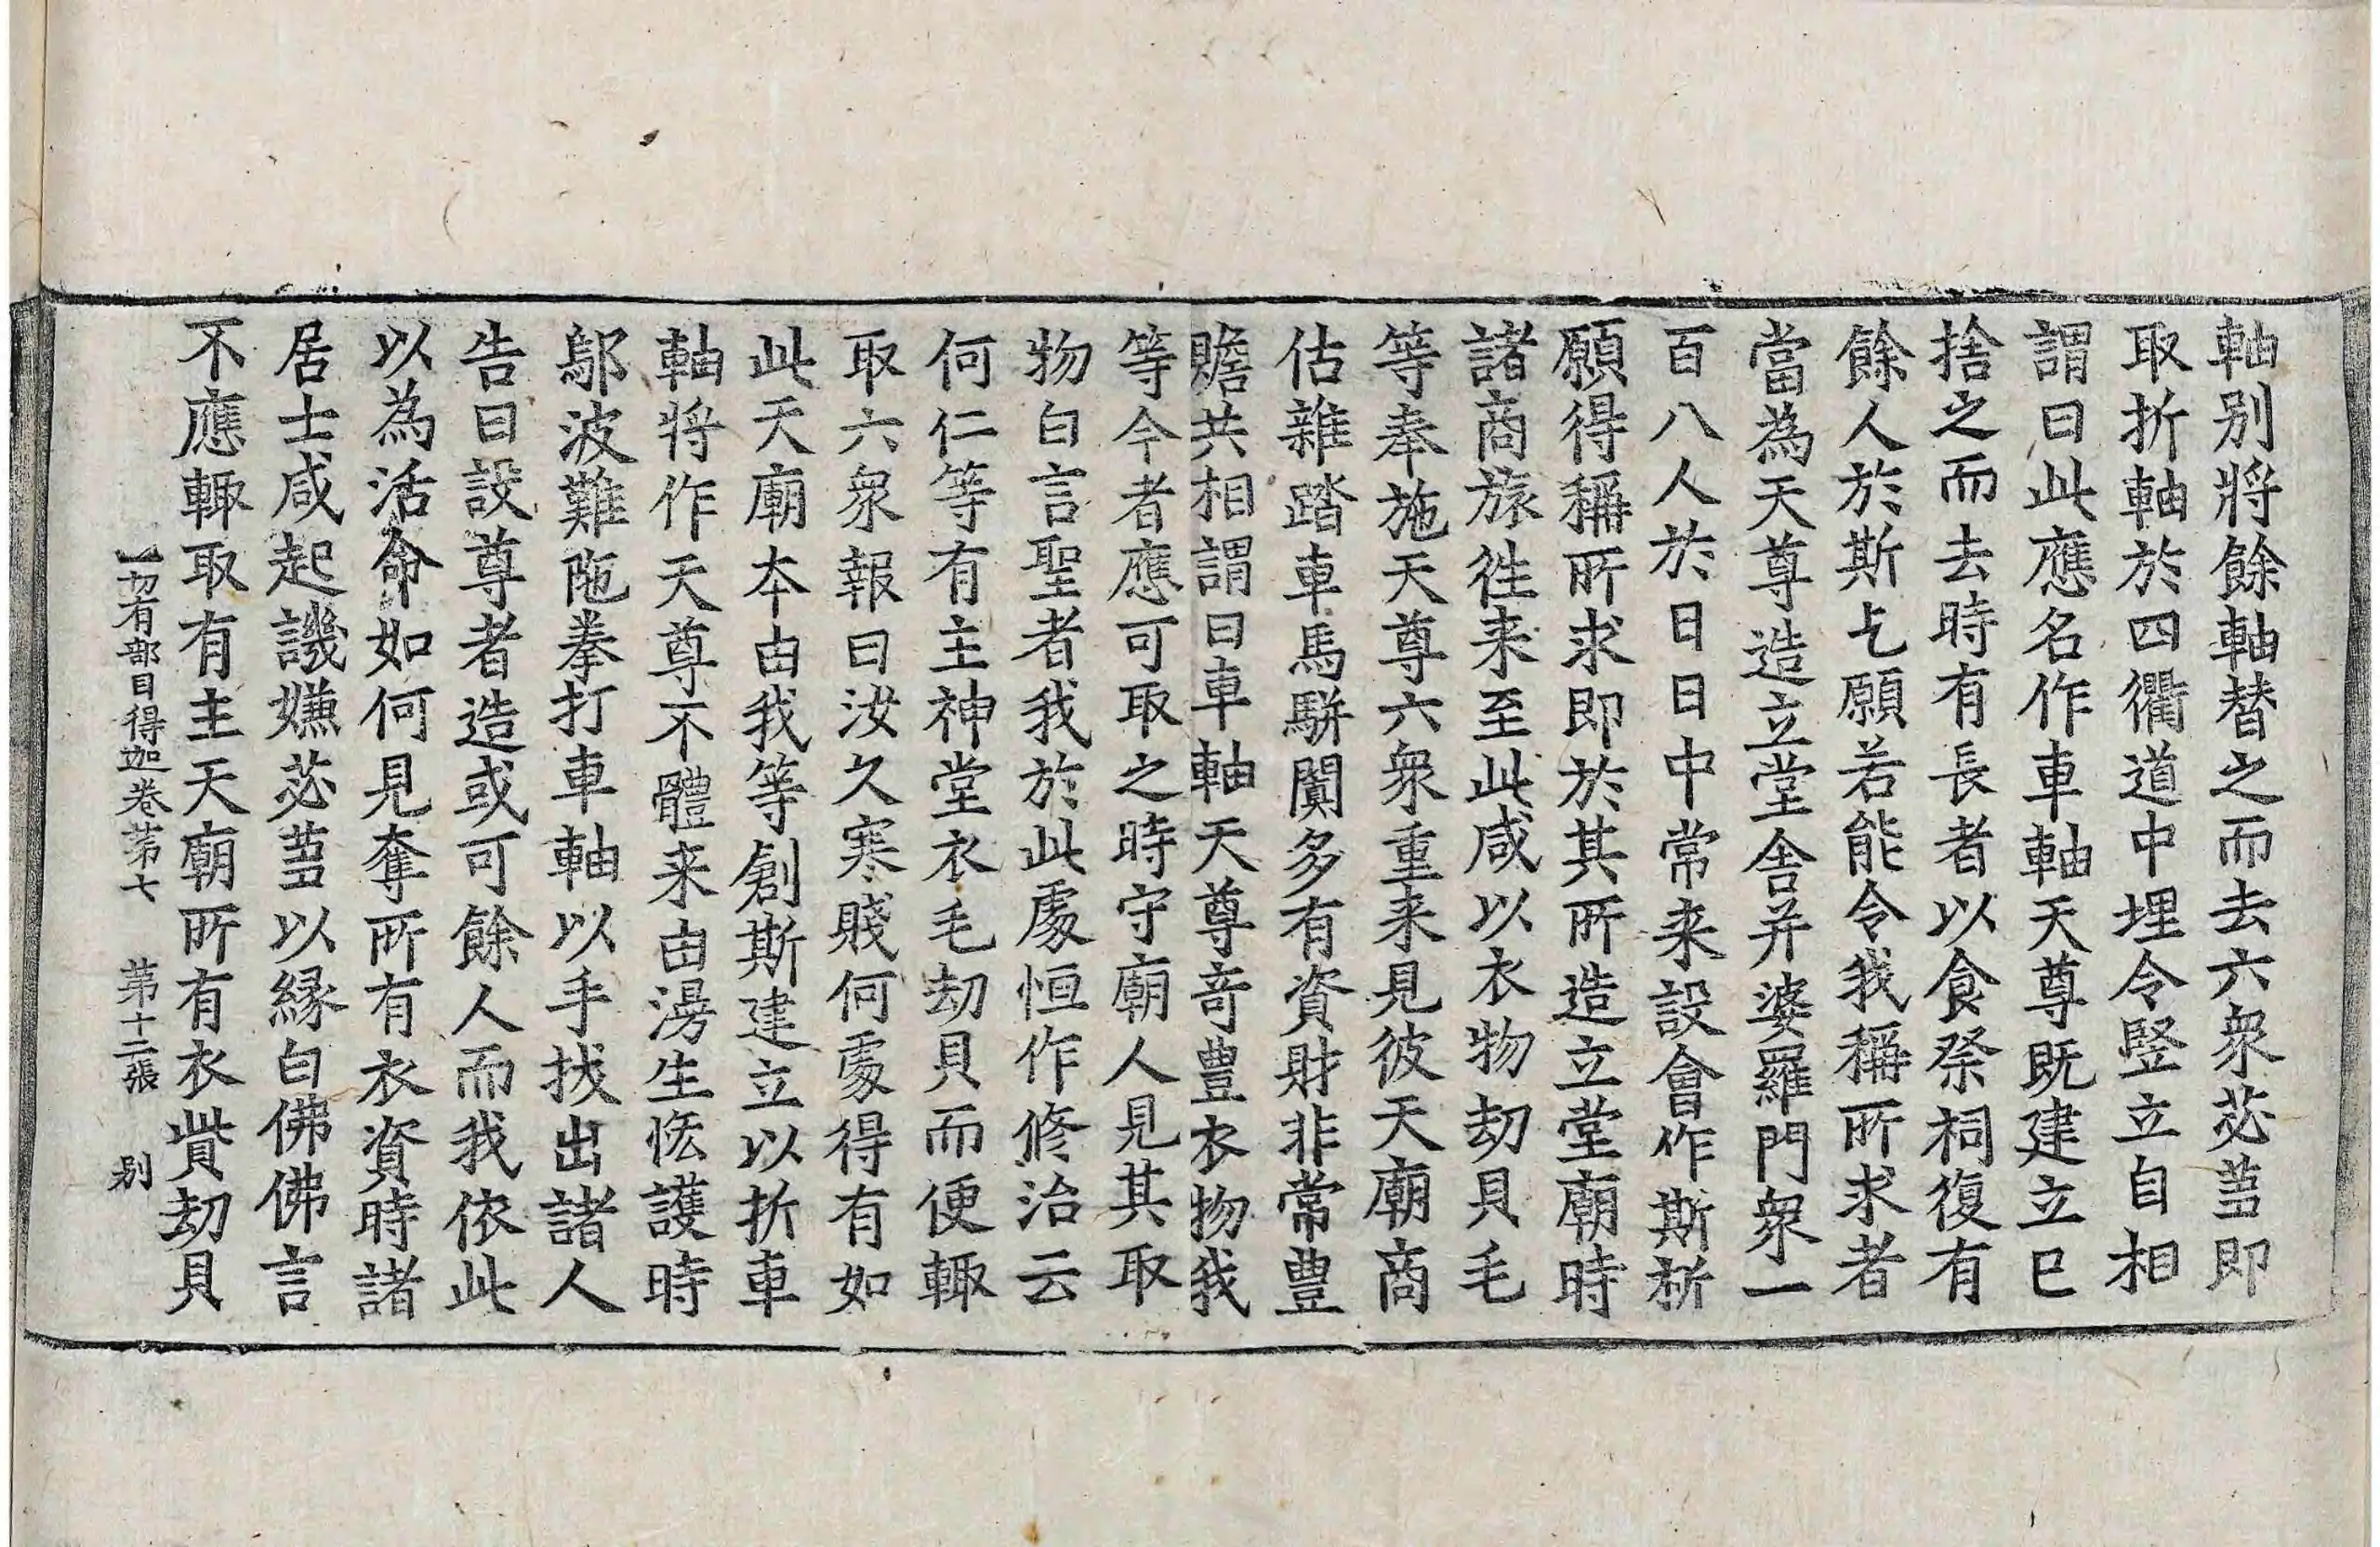 軸別將餘軸替之而去六衆苾蒭即
取折軸於四衢道中埋令竪立自相
謂曰此應名作車軸天尊既建立已
捨之而去時有長者以食祭祠復有
餘人於斯乞願若能令我稱所求者
當為天尊造立堂舍并婆羅門衆一
百八人於日日中常来設會作斯祈
願得稱所求即於其所造立堂廟時
諸商旅徃来至此咸以衣物劫貝毛
等奉施天尊六衆重来見彼天廟商
估雜踏車馬駢闐多有資財非常豊
贍共相謂曰車軸天尊竒豊衣物我
等今者應可取之時守廟人見其取
物白言聖者我於此處恒作修治云
何仁等有主神堂衣毛劫貝而便輙
取六衆報曰汝久寒賤何處得有如
此天廟夲由我等創斯建立以折車
軸將作天尊不體来由湯生悋護時
鄔波難陁拳打車軸以手拔出諸人
告曰設尊者造或可餘人而我依此
以為活命如何見奪所有衣資時諸
居士咸起譏嫌苾蒭以緣白佛佛言
不應輙取有主天廟所有衣貲劫貝
一切有部目得迦卷第七 第十二張 別